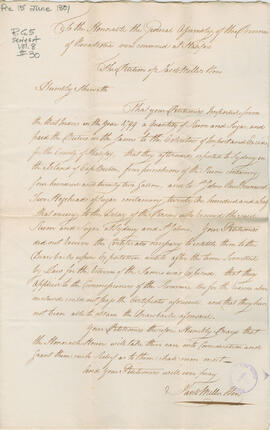 Pre 15 June 1801
RG5
Series A
Vol. 8
# 30
To the Honorable the General Assembly of the Province
of Nova Scotia now convened at Halifax
The Petition of
Humbly Sheweth
That your Petitioners Imported from
the West Indies in the Year 1799 a quantity of Rum and Sugar, and
paid the Duties on the same to the Collector of Impost and Excise
for the County of Halifax, that they afterwards exported to Sydney on
the Island of Cape Breton four puncheons of the Rum containing
four hundred and twenty two Gallons, and to St Johns
two Hogsheads of Sugar containing twenty two hundred and
that owing to the Delay of the Persons who received the said
Rum and Sugar at Sydney and St Johns, Your Petitioners
did not receive the Certificates necessary to entitle them to the
Drawbacks upon Exportation until after the time limited
by Law for the return of the same was expired, that they
applied to the Commissioners of the Revenue
could not pay the Certificates aforesaid, and that they have
not been able to obtain the Drawbacks aforesaid.
Your Petitioners therefore Humbly Pray that
the Honorable House will take their case into Consideration and
Grant them such Relief as to them shall seem meet
and Your Petitioners will ever pray